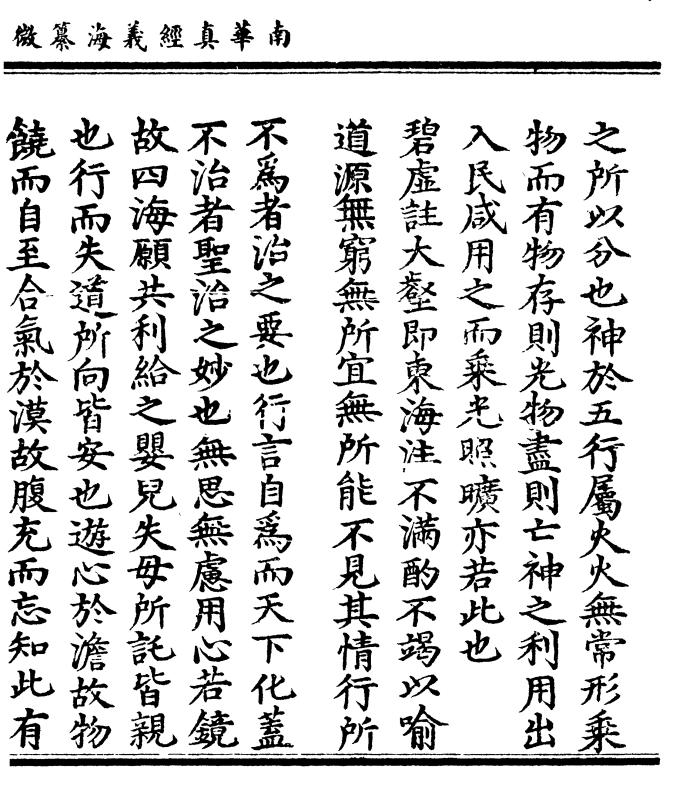 南華真經義海纂微
之所以分也神於五行屬火火無常形乗
物而有物存則光物盡則亡神之利用出
入民咸用之而乗光照曠亦若此也
碧虛註大壑即東海注不滿酌不竭以喻
道源無窮無所宜無所能不見其情行所
不爲者治之要也行言自爲而天下化蓋
不治者聖治之妙也無思無慮用心若鏡
故四海願共利給之嬰兒失母所託皆親
也行而失道所向皆安也遊心於澹故物
饒而自至合氣於漠故腹充而忘知此有